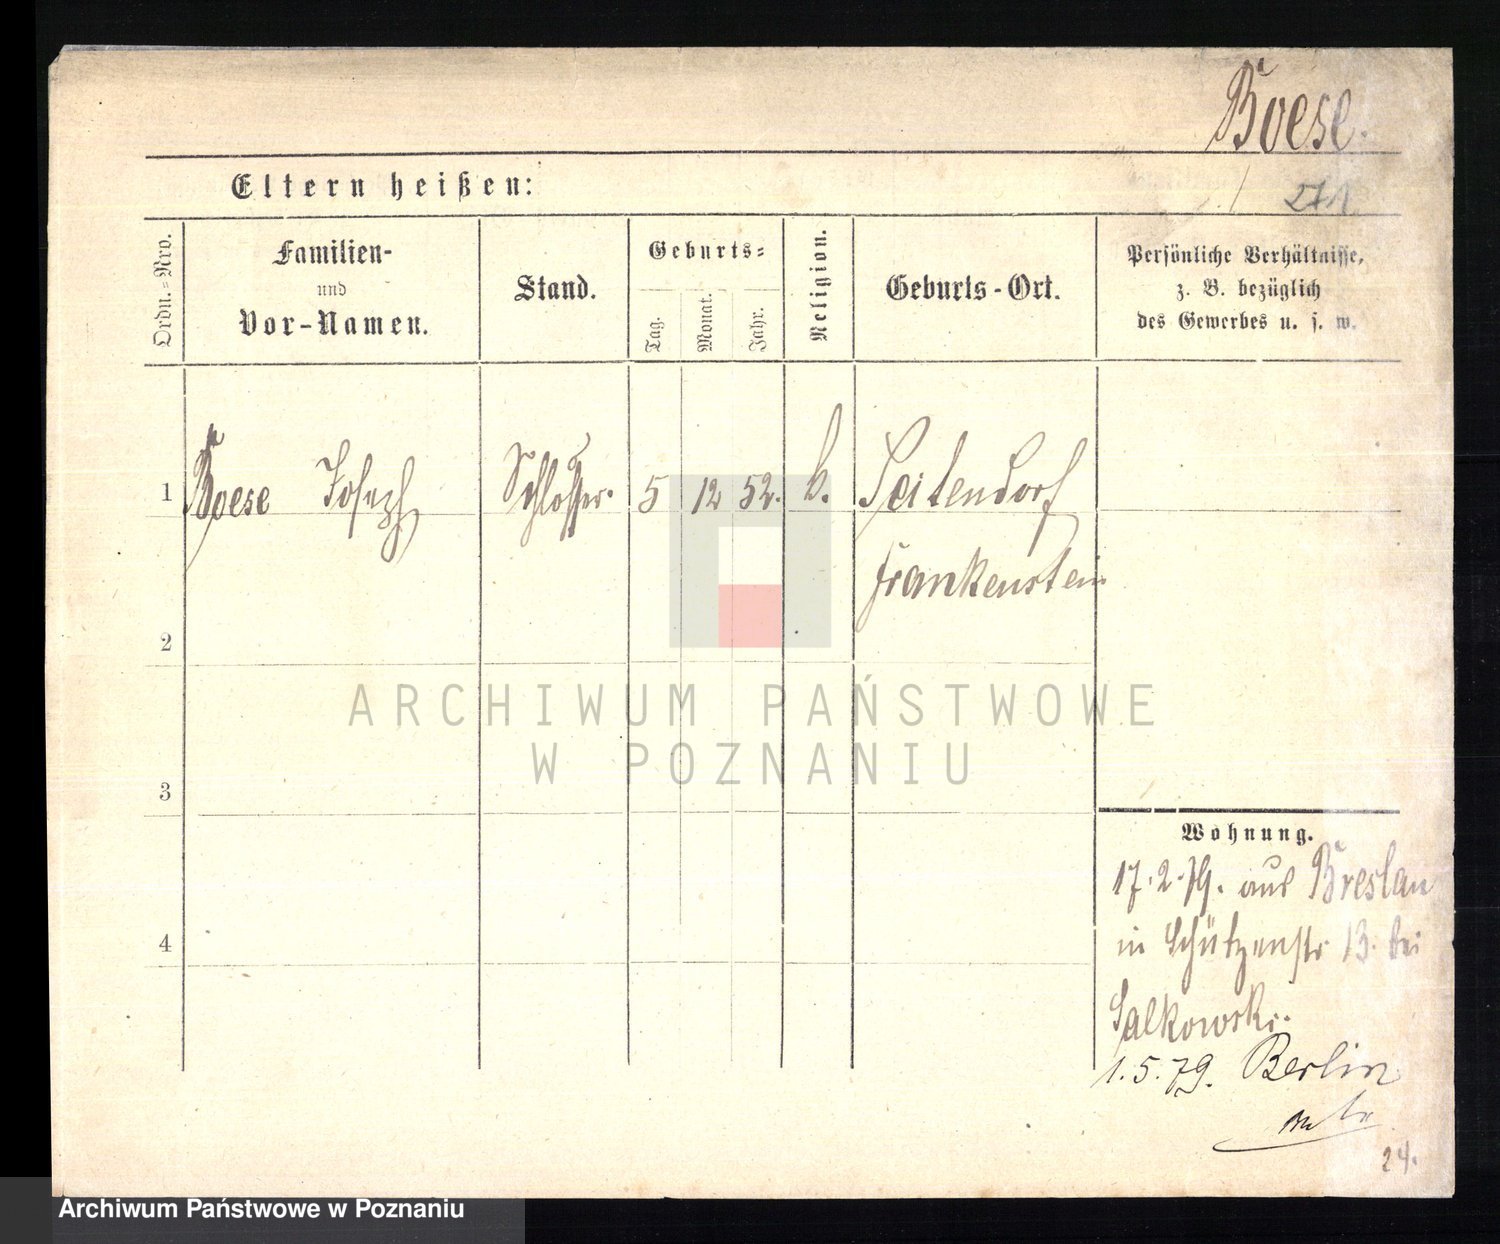 Boese.
Eltern heißen:
271
Ordn.=Nro.
Familien-
und
Vor-Namen.
Stand.
Geburts=
Tag.
Monat.
Jahr.
Religion.
Geburts-Ort.
Persönliche Verhältnisse,
z. B. bezüglich
des Gewerbes u. s. w.
1 Boese Joseph Schlosser. 5 12 52. k. Seitendorf
Frankenstein
2
3
4
Wohnung.
17.2.79. aus Breslau
in Schützenstr 13. bei
Salkowski.
1.5.79. Berlin
24.
ARCHIWUM PAŃSTWOWE
W POZNANIU
Archiwum Państwowe w Poznaniu